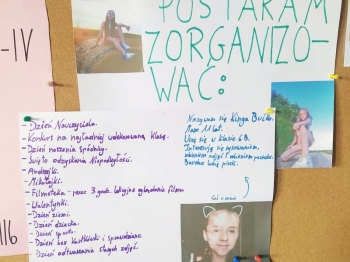 POSTARAM
ZORGANIZO-
WAĆ:
-IV
- Dzień Nauczyciela.
- Konkurs na najładniej udekorowaną klasę.
- Dzień noszenia spódnicy.
- Święto odzyskania Niepodległości.
- Andrzejki.
- Mikołajki.
- Filmoteka - przez 3 godz. lekcyjne oglądanie filmu.
- Walentynki.
- Dzień ziemi.
- Dzień dziecka.
- Dzień sportu.
- Dzień bez kartkówki i sprawdzianu.
- Dzień odtwarzania starych zdjęć.
Nazywam się Kinga
Mam 11 lat.
Uczę się w klasie 6B.
Interesuję się rysowaniem,
Bardzo lubię pieski.
116